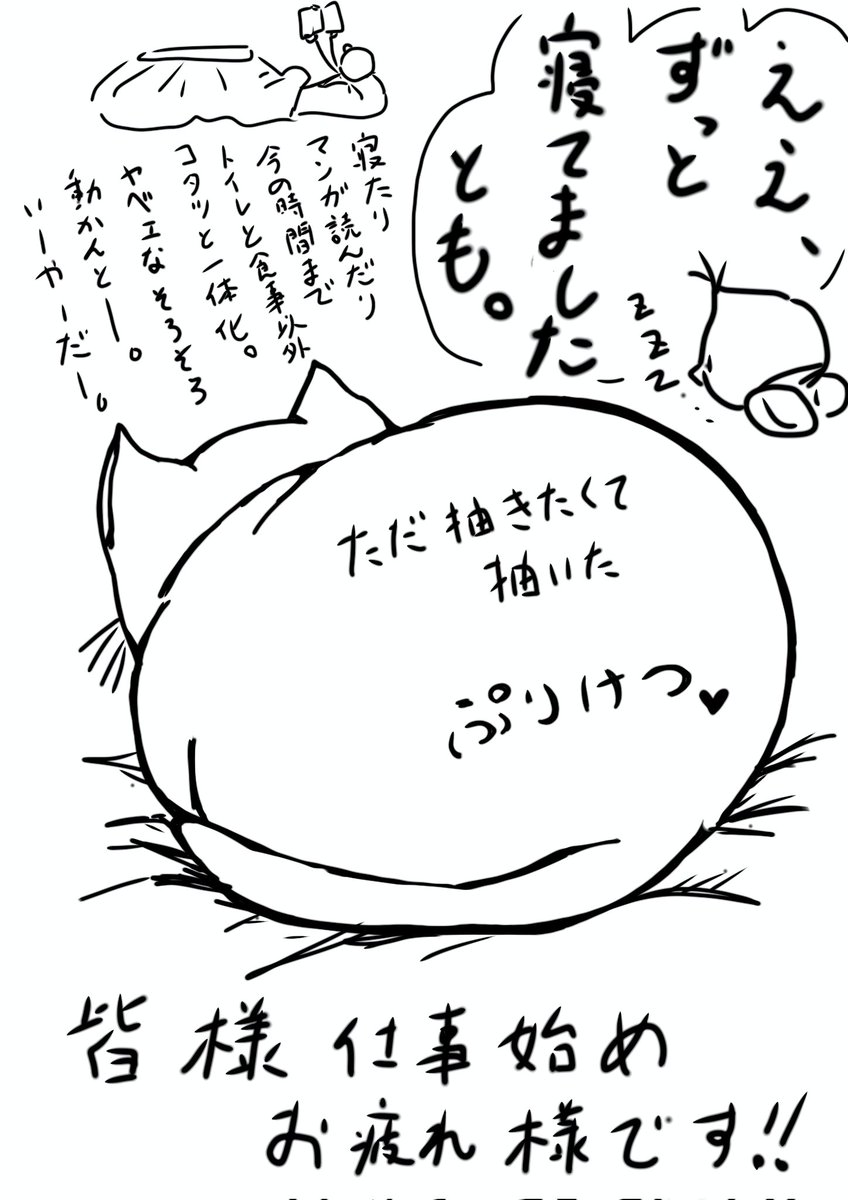 ええ、
ずっと
寝てました
とも。
zzz
寝たり
マンガ読んだり
今の時間まで
トイレと食事以外
コタツと一体化。
ヤベェな そろそろ
動かんとー。
いーやーだー。
ただ描きたくて
描いた
ぷりけつ♥
皆様 仕事始め
お疲れ様です!!